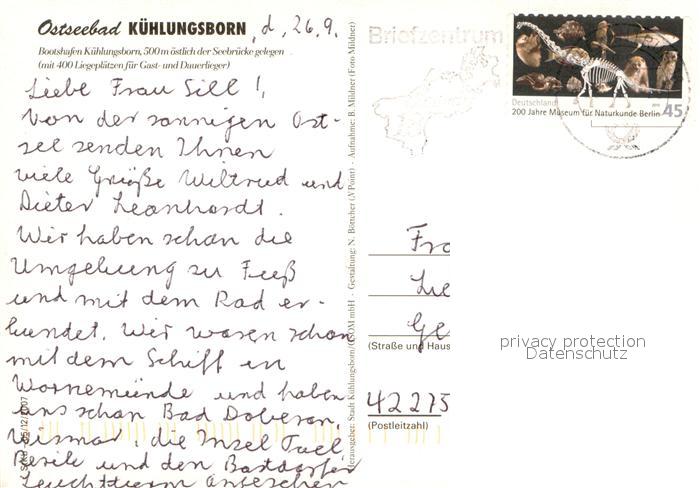 Ostseebad KÜHLUNGSBORN, d. 26.9.
Bootshafen Kühlungsborn, 500 m östlich der Seebrücke gelegen
(mit 400 Liegeplätzen für Gast- und Dauerlieger)
Liebe Frau Sill!,
Von der sonnigen Ost-
see senden Ihnen
viele Grüße Wiltrud und
Dieter Leonhardt.
Wir haben schon die
Umgebung zu Fuß
und mit dem Rad er-
kundet. Wir waren schon
mit dem Schiff in
Warnemünde und haben
uns schon Bad Doberan,
Wismar, die Insel Poel
Rerik und den Bastorfer
Leuchtturm angesehen
Herausgeber: Stadt Kühlungsborn/(COM mbH - Gestaltung: N. Böttcher (VPoint) - Aufnahme: B. Mildner (Foto Mildner)
Briefzentrum
Deutschland
200 Jahre Museum für Naturkunde Berlin 45
Fra
Ge
(Straße und Haus
privacy protection
Datenschutz
42275
(Postleitzahl)